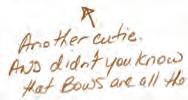 Another cutie.
AND didn't you know
that Bows are all the